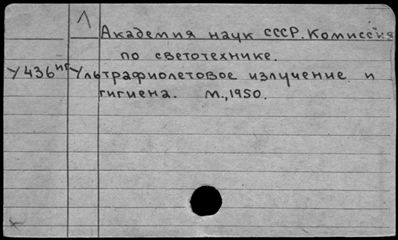 Л
Академия наук СССР. Комиссия
по светотехнике.
У436нг Ультрафиолетовое излучение и
гигиена. М., 1950.